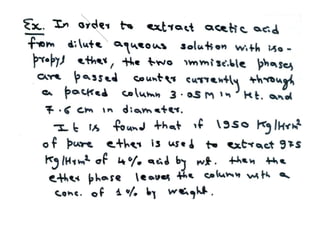 Ex. In order to extract acetic acid
from dilute aqueous solution with iso-
propyl ether, the two immiscible phases
are passed counter currently through
a packed column 3.05 M in Ht. and
7.6 cm in diameter.
It is found that if 1950 Kg/Hrm²
of pure ether is used to extract 975
Kg/Hrm² of 4% acid by wt. then the
ether phase leaves the column with a
conc. of 1% by weight.